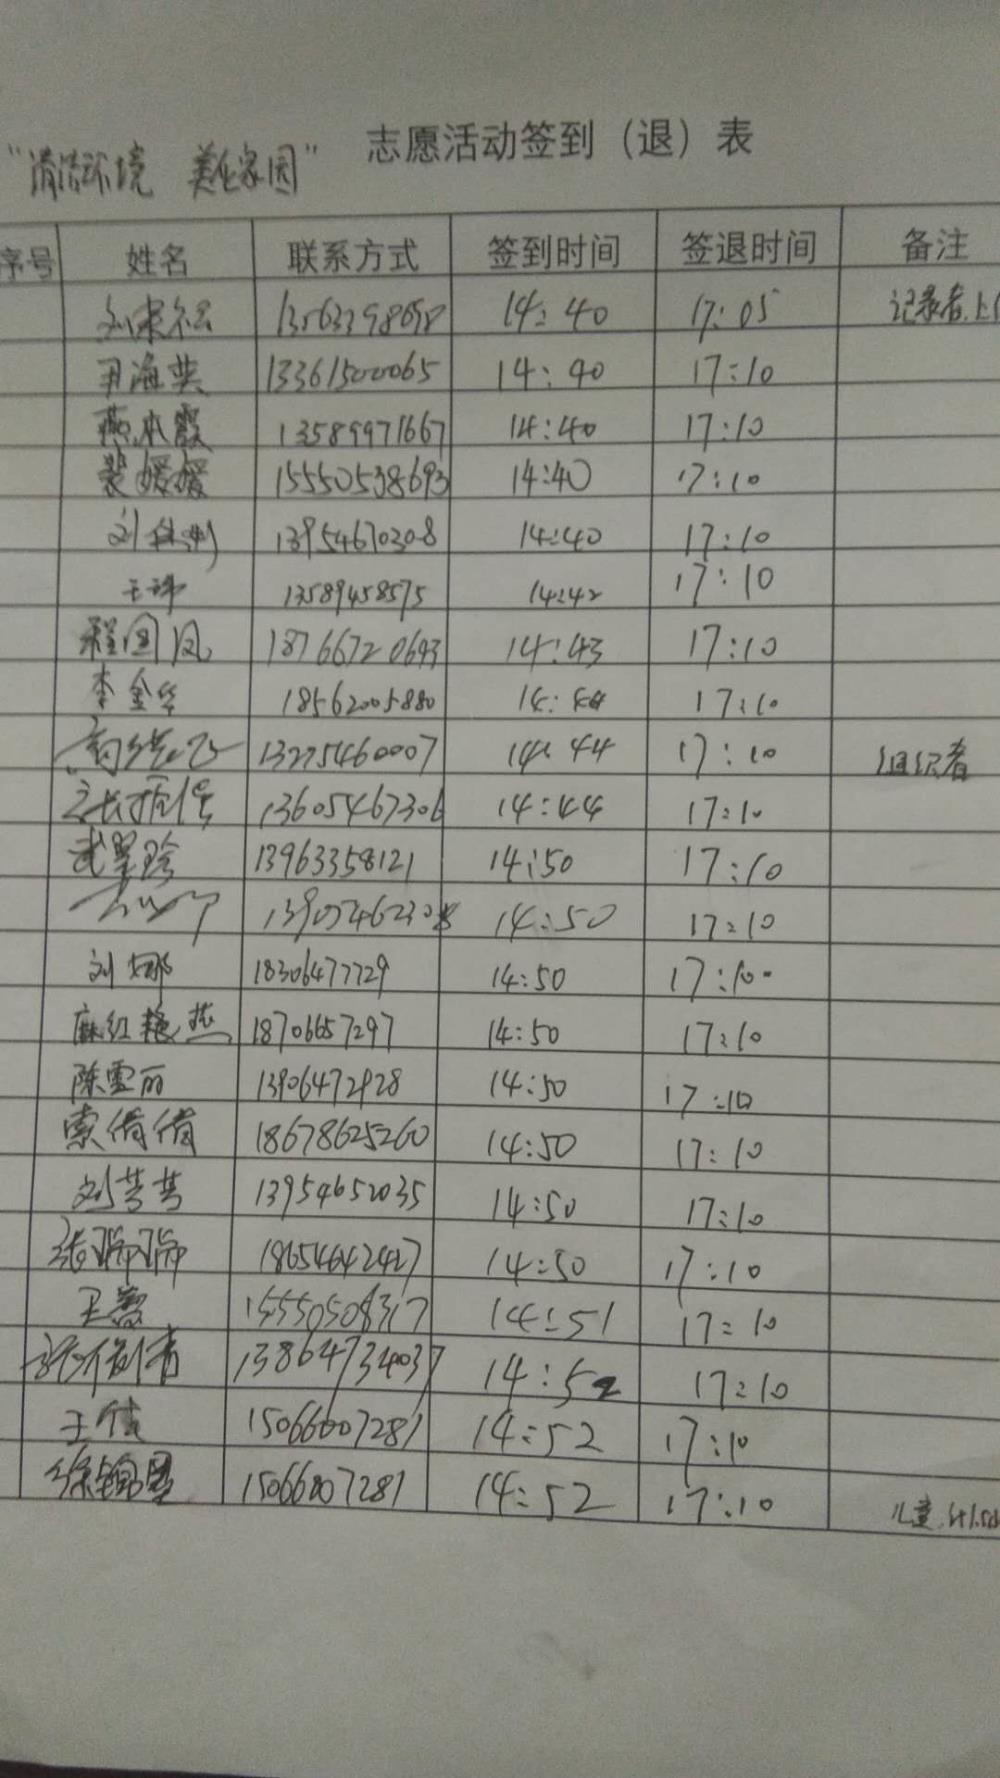 志愿活动签到（退）表
"清洁环境 美化家园"
序号 姓名 联系方式 签到时间 签退时间 备注
14:40 17:05 记录者.上
尹海英 13361500065 14:40 17:10
燕水霞 13589971667 14:40 17:10
裴媛媛 15550538693 14:40 17:10
刘 13954670308 14:40 17:10
王玮 13589458575 14:42 17:10
程国凤 18766720693 14:43 17:10
李金华 18562005880 14:44 17:10
13275460007 14:44 17:10 组织者
13605467306 14:44 17:10
武翠珍 13963358121 14:50 17:10
14:50 17:10
刘娜 18306477729 14:50 17:10
麻红艳 18706657297 14:50 17:10
陈雪丽 13906472928 14:50 17:10
索倩倩 18678625260 14:50 17:10
刘芳芳 13954652035 14:50 17:10
张瑞瑞 18654642427 14:50 17:10
王蕾 15550508317 14:51 17:10
13864734037 14:52 17:10
王倩 15066007281 14:52 17:10
15066007281 14:52 17:10 儿童